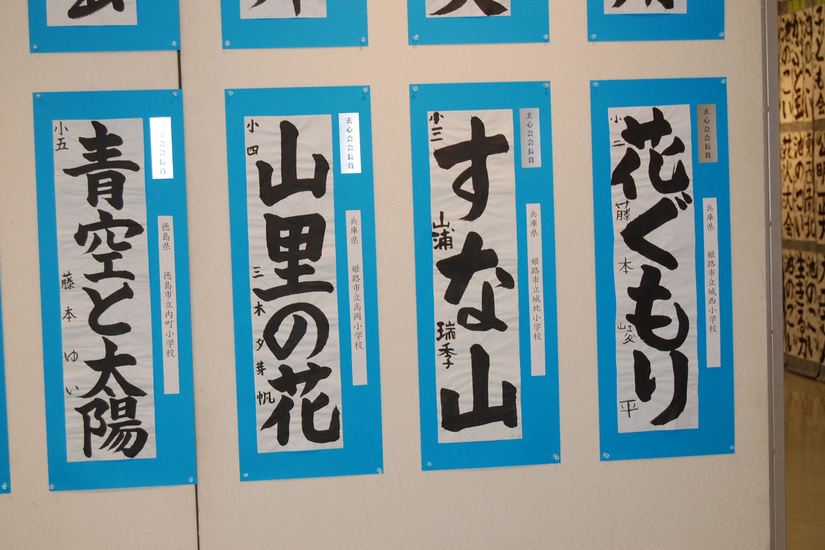 玄心会会長賞
兵庫県 姫路市立城西小学校
花ぐもり
小二 藤本 平
玄心会会長賞
兵庫県 姫路市立城北小学校
すな山
小三 山浦瑞季
玄心会会長賞
兵庫県 姫路市立高岡小学校
山里の花
小四 三木夕芽帆
会会長賞
徳島県 徳島市立内町小学校
青空と太陽
小五 藤本ゆい